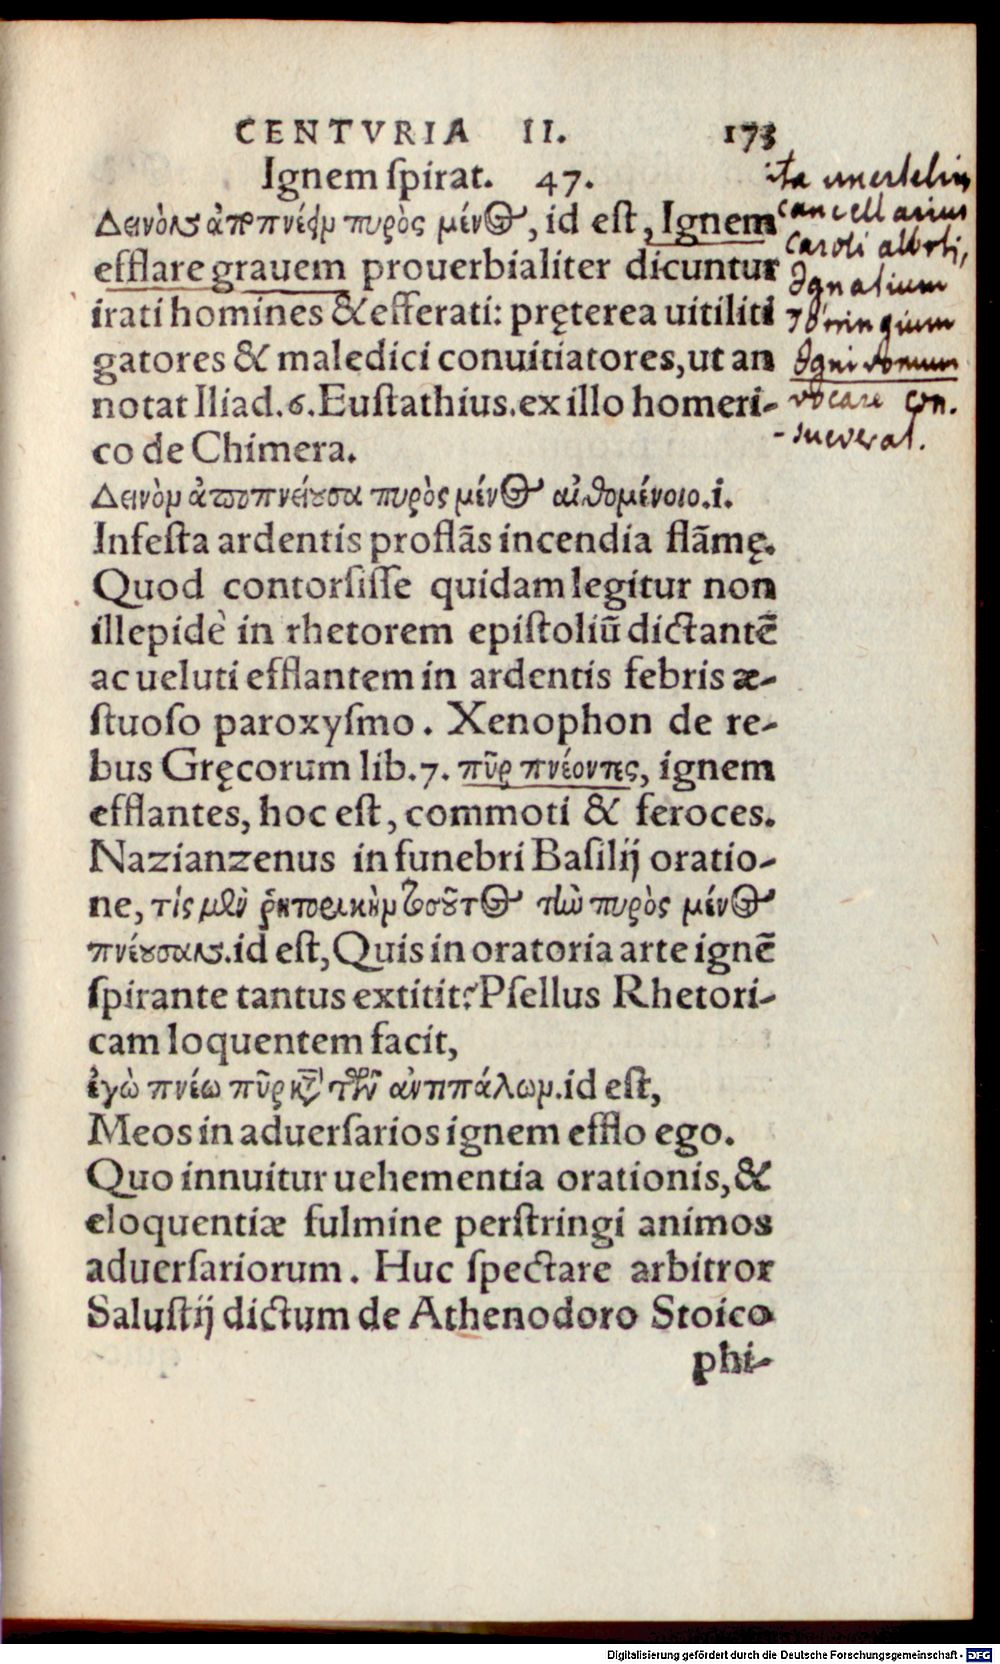 CENTVRIA II. 173
Ignem ſpirat. 47.
Δεινὸν ἀποπνέειν πυρὸς μένος, id eſt, Ignem
efflare grauem prouerbialiter dicuntur
irati homines & efferati: pręterea uitiliti
gatores & maledici conuitiatores, ut an
notat Iliad.6. Euſtathius. ex illo homeri-
co de Chimera.
Δεινὸν ἀποπνείουσα πυρὸς μένος αἰθομένοιο.i.
Infeſta ardentis proflãs incendia flãmę.
Quod contorſiſſe quidam legitur non
illepidè in rhetorem epiſtoliũ dictantẽ
ac ueluti efflantem in ardentis febris æ-
ſtuoſo paroxyſmo. Xenophon de re-
bus Gręcorum lib.7. πῦρ πνέοντες, ignem
efflantes, hoc eſt, commoti & feroces.
Nazianzenus in funebri Baſilij oratio-
ne, τίς μὲν ῥητορικὴν τοσοῦτος τὴν πυρὸς μένος
πνέουσαν. id eſt, Quis in oratoria arte ignẽ
ſpirante tantus extitit? Pſellus Rhetori-
cam loquentem facit,
ἐγὼ πνέω πῦρ κατὰ τῶν ἀντιπάλων. id eſt,
Meos in aduerſarios ignem efflo ego.
Quo innuitur uehementia orationis, &
eloquentiæ fulmine perſtringi animos
aduerſariorum. Huc ſpectare arbitror
Saluſtij dictum de Athenodoro Stoico
phi-
ita
cancellarius
caroli
Ignatium
vocare con-
-sueverat.
Digitalisierung gefördert durch die Deutsche Forschungsgemeinschaft - DFG